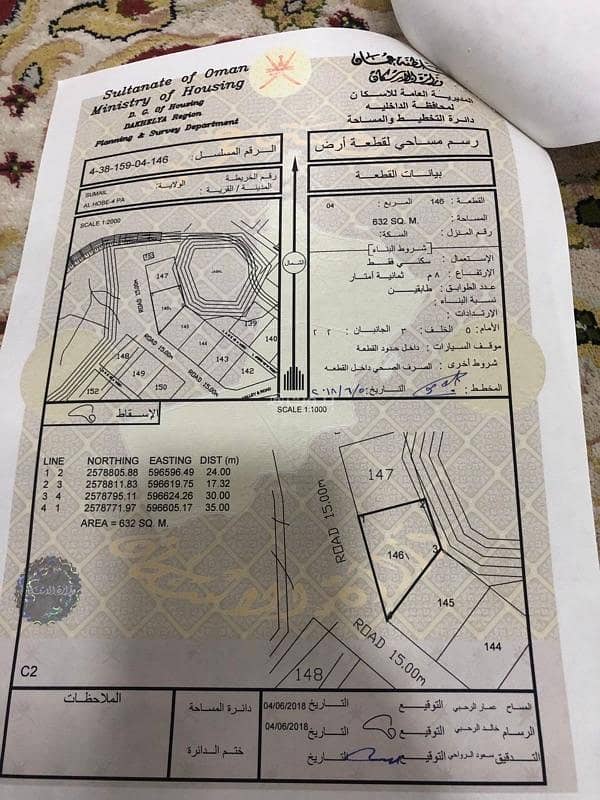 Sultanate of Oman
Ministry of Housing
D. G. Of Housing
DAKHELYA Region
Planning & Survey Department
سلطنة عمان
وزارة الإسكان
المديرية العامة للاسكان
لمحافظة الداخليه
دائرة التخطيط والمساحة
الرقم المسلسل :
4-38-159-04-146
رقم الخريطة
الولاية:
SUMAIL
المدينة / القرية :
AL HOBE-4 PA
SCALE 1:2000
رسم مساحي لقطعة أرض
بيانات القطعة
القطعة : 146 المربع : 04
المساحة : 632 SQ. M.
رقم المنزل : السكة:
شروط البناء
الإستعمال : سكني فقط
الإرتفاع : ٨ م ثمانية أمتار
عدد الطوابق : طابقين
نسبة البناء :
الإرتدادات :
الأمام : ٥ الخلف : ٣ الجانبان : ٢ ٢
موقف السيارات : داخل حدود القطعة
شروط أخرى : الصرف الصحي داخل القطعه
المخطط : التاريخ:
الشمال
147
ROAD 15.00m
139
140
142
143
148
149
150
152
ROAD 15.00m
ROAD 15.00m
الإسقاط
SCALE 1:1000
LINE NORTHING EASTING DIST (m)
1 2 2578805.88 596596.49 24.00
2 3 2578811.83 596619.75 17.32
3 4 2578795.11 596624.26 30.00
4 1 2578771.97 596605.17 35.00
AREA = 632 SQ. M.
147
ROAD 15.00m
1
2
3
146
145
144
ROAD 15.00m
148
C2
الملاحظات
دائرة المساحة
ختم الدائرة
المساح عمار الرحبي التوقيع التاريخ 04/06/2018
الرسام خالد الرحبي التوقيع التاريخ 04/06/2018
التدقيق سعود الرواحي التوقيع التاريخ